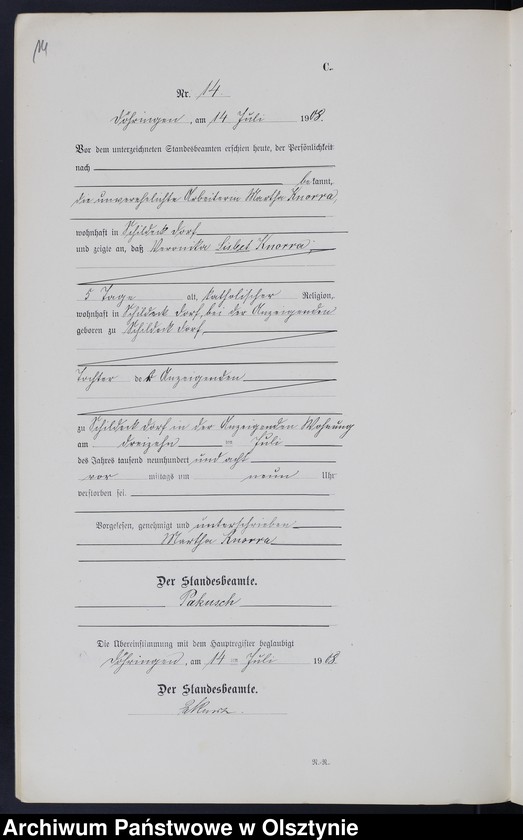 14
C.
Nr. 14.
Döhringen, am 14 Juli 1908.
Vor dem unterzeichneten Standesbeamten erschien heute, der Persönlichkeit
nach
bekannt,
die unverehelichte Arbeiterin Martha Knorra,
wohnhaft in Schildeck Dorf
und zeigte an, daß Veronika Lisbet Knorra,
5 Tage alt, katholischer Religion,
wohnhaft in Schildeck Dorf, bei der Anzeigenden
geboren zu Schildeck Dorf
Tochter der Anzeigenden
zu Schildeck Dorf in der Anzeigenden Wohnung
am dreizehn = Juli
des Jahres tausend neunhundert und acht
vor mittags um neun Uhr
verstorben sei.
Vorgelesen, genehmigt und unterschrieben
Martha Knorra
Der Standesbeamte.
Pakusch
Die Übereinstimmung mit dem Hauptregister beglaubigt
Döhringen, am 14 = Juli 1908
Der Standesbeamte.
N.-R.
Archiwum Państwowe w Olsztynie